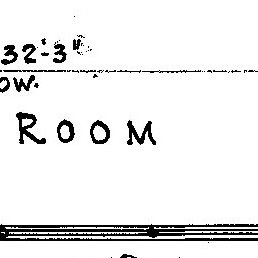 32'-3"
OW.
ROOM